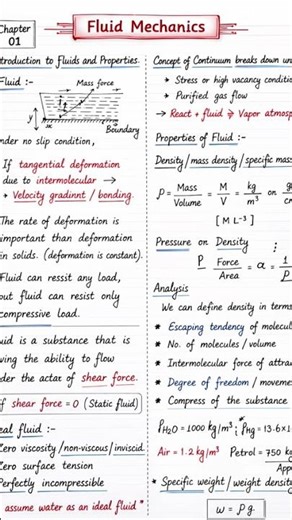 Chapter
01
Fluid Mechanics
troduction to Fluids and Properties.
Fluid :-
Mass force
y
x
Boundary
nder no slip condition,
If tangential deformation
due to intermolecular →
→ Velocity gradinnt / bonding.
The rate of deformation is
important than deformation
in solids. (deformation is constant).
Fluid can ressist any load,
but fluid can resist only
compressive load.
uid is a substance that is
ving the ability to flow
der the actat of shear force.
f shear force = 0 (Static fluid)
eal fluid :-
Zero viscosity/non-viscous/inviscid.
Zero surface tension
Perfectly incompressible
assume water as an ideal fluid "
Concept of Continuum breaks down un
→ Stress or high vacuum conditi
→ Purified gas flow
→ React + fluid ⇛ Vapor atmosp
Properties of Fluid :-
Density/mass density / specific mass
ρ = Mass / Volume = M / V = kg / m³ on g
[ M L⁻³ ]
Pressure on Density :
P Force / Area = α = 1 / P
Analysis
We can define density in terms
* Escaping tendency of molecul
* No. of molecules / volume
* Intermolecular force of attra
* Degree of freedom / moveme
* Compress of the substance
ρH₂O = 1000 kg/m³ ; ρHg = 13.6×1
Air = 1.2 kg/m³ Petrol = 750 kg
App
* Specific weight / weight density
w = ρg.